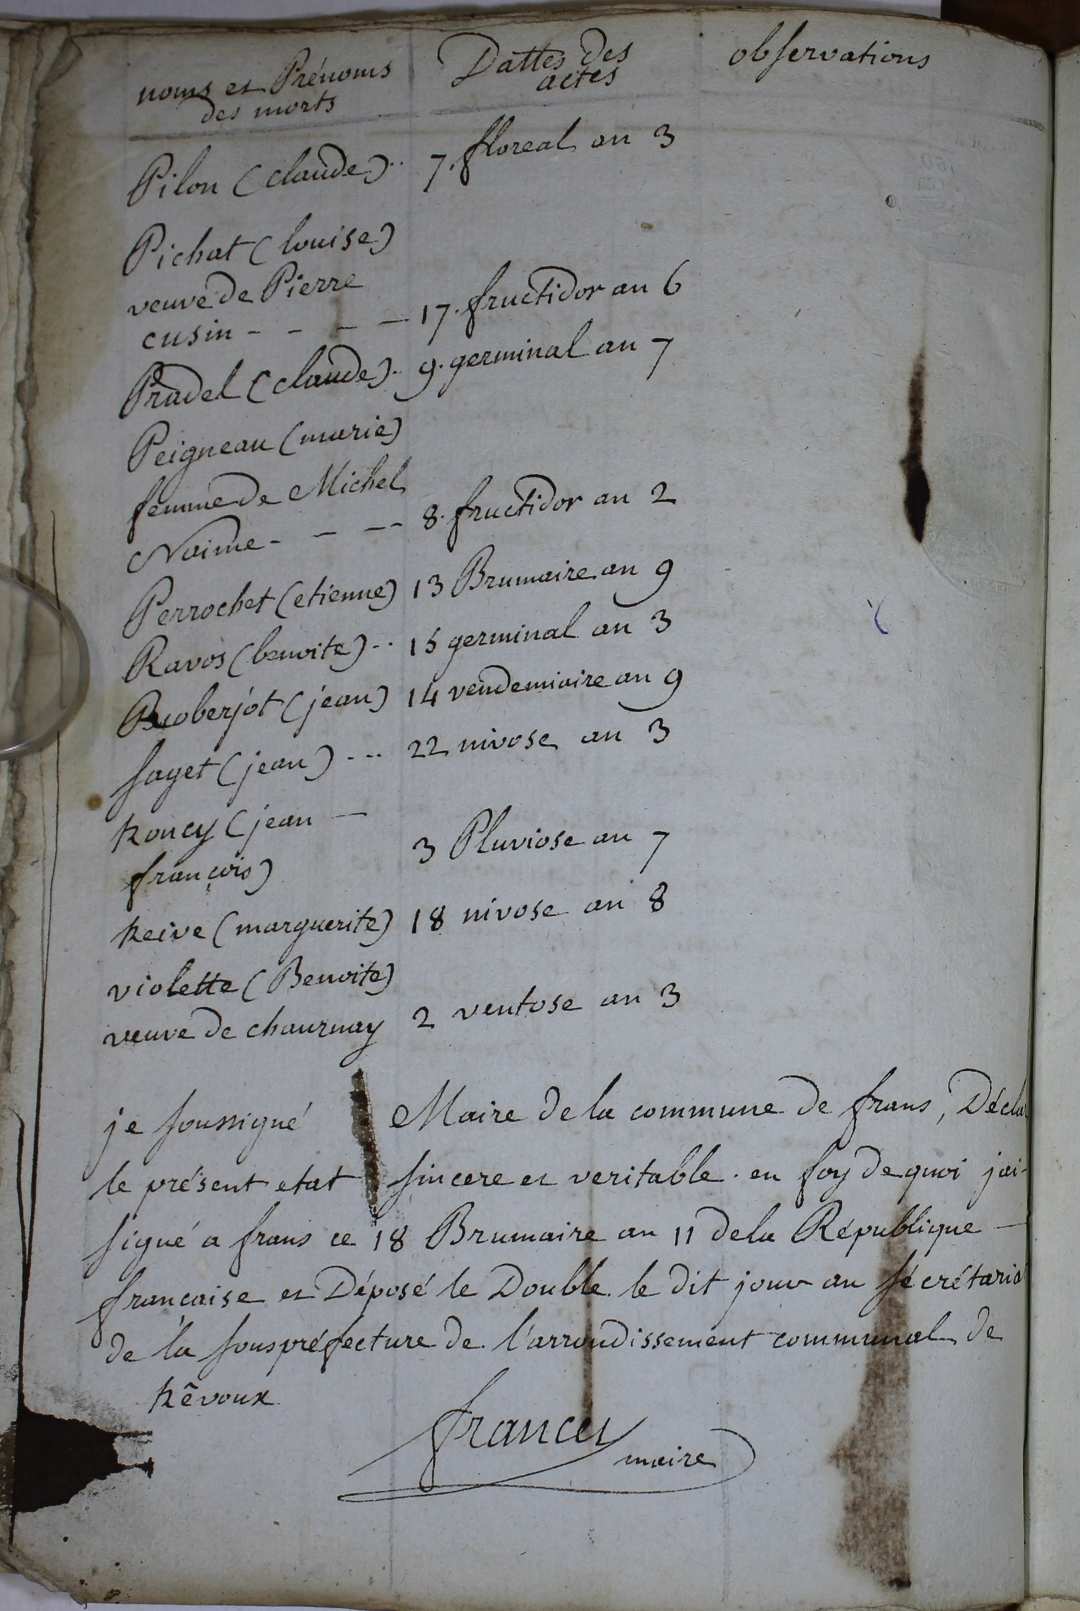 noms et Prénoms des morts
Dattes des actes
observations
Pilon (claude) .. 7. floreal an 3
Pichat (louise)
veuve de Pierre
cusin - - - - 17. fructidor an 6
Pradel (claude). 9. germinal an 7
Peigneau (marie)
femme de Michel
Naime - - - 8. fructidor an 2
Perrochet (etienne) 13 Brumaire an 9
Ravos (benoite) .. 15 germinal an 3
Roberjot (jean) 14 vendemiaire an 9
sayet (jean) ... 22 nivose an 3
troncy (jean -
françois) 3 Pluviose an 7
treive (marguerite) 18 nivose an 8
violette (Benoite)
veuve de chaurnay 2 ventose an 3
je soussigné Maire de la commune de frans, Décla
le présent etat sincere et veritable. en foy de quoi j'ai
signé a frans ce 18 Brumaire an 11 de la République -
française et Déposé le Double le dit jour au sécrétaria
de la souspréfecture de l'arrondissement communal de
trêvoux
maire